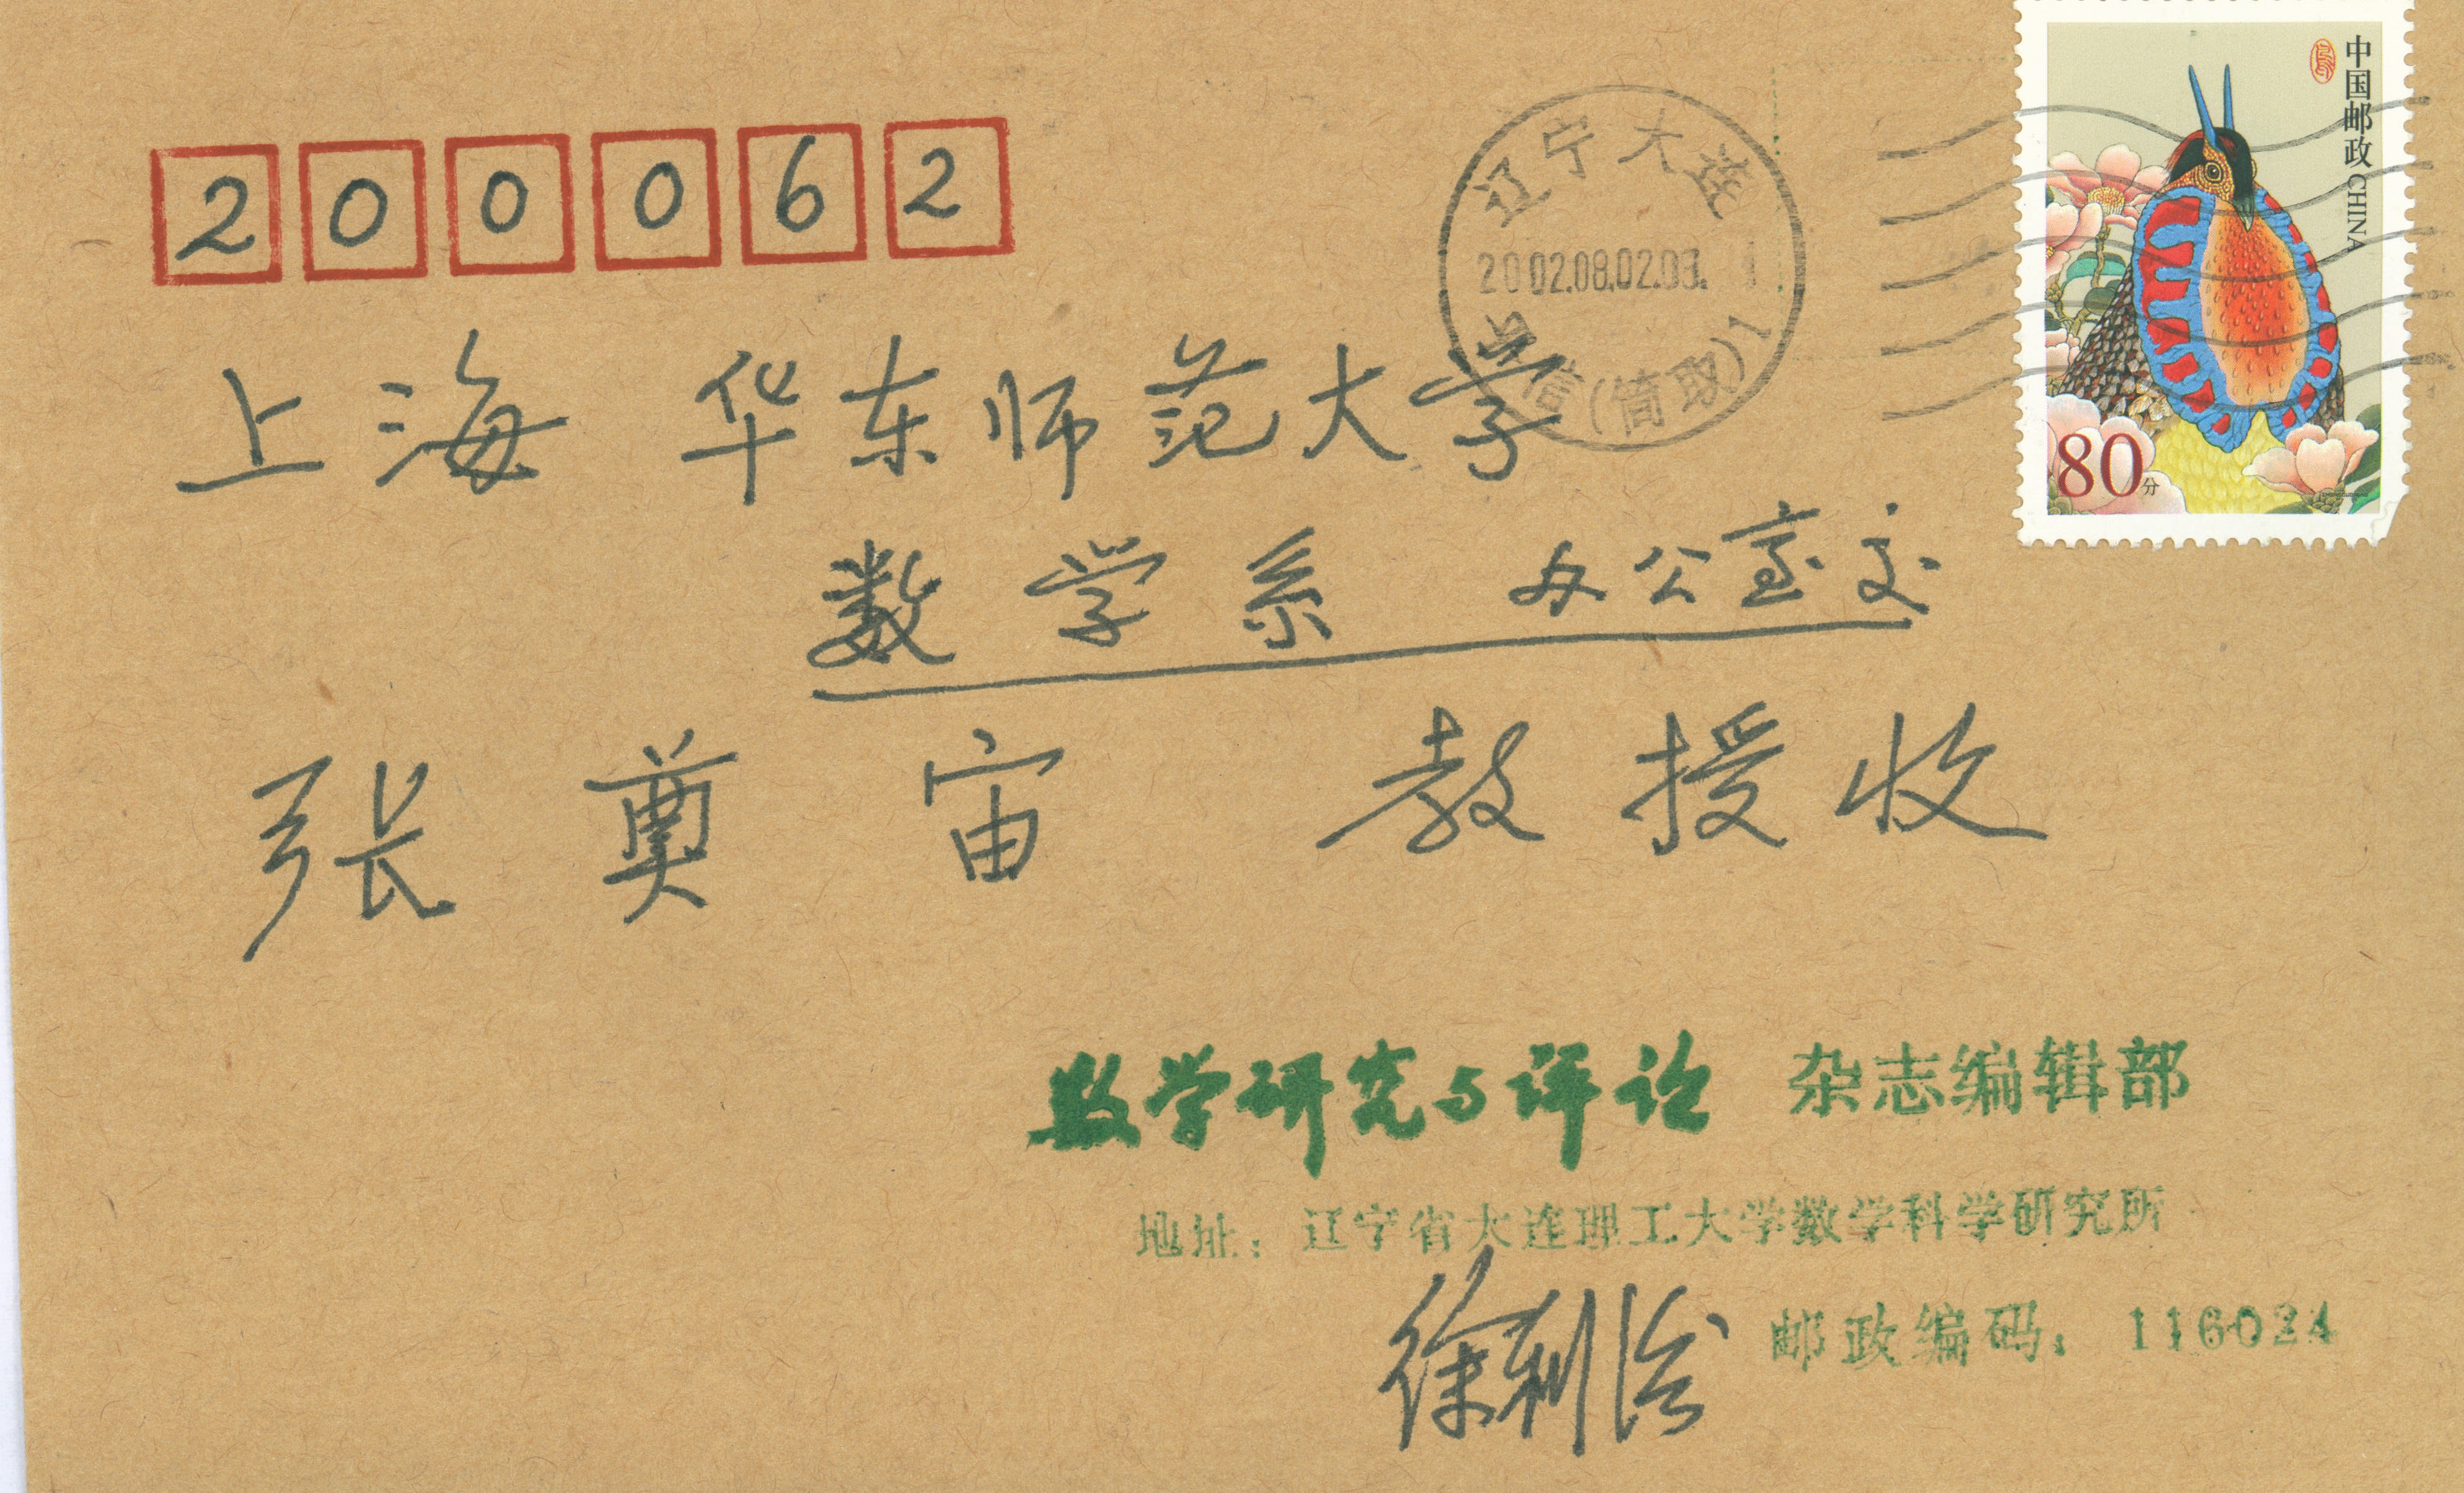 中国邮政 CHINA
80分
200062
辽宁大连
2002.08.02.08.
(简取)1
上海 华东师范大学
数学系 办公室交
张奠宙 教授收
数学研究与评论 杂志编辑部
地址：辽宁省大连理工大学数学科学研究所
徐利治 邮政编码：116024